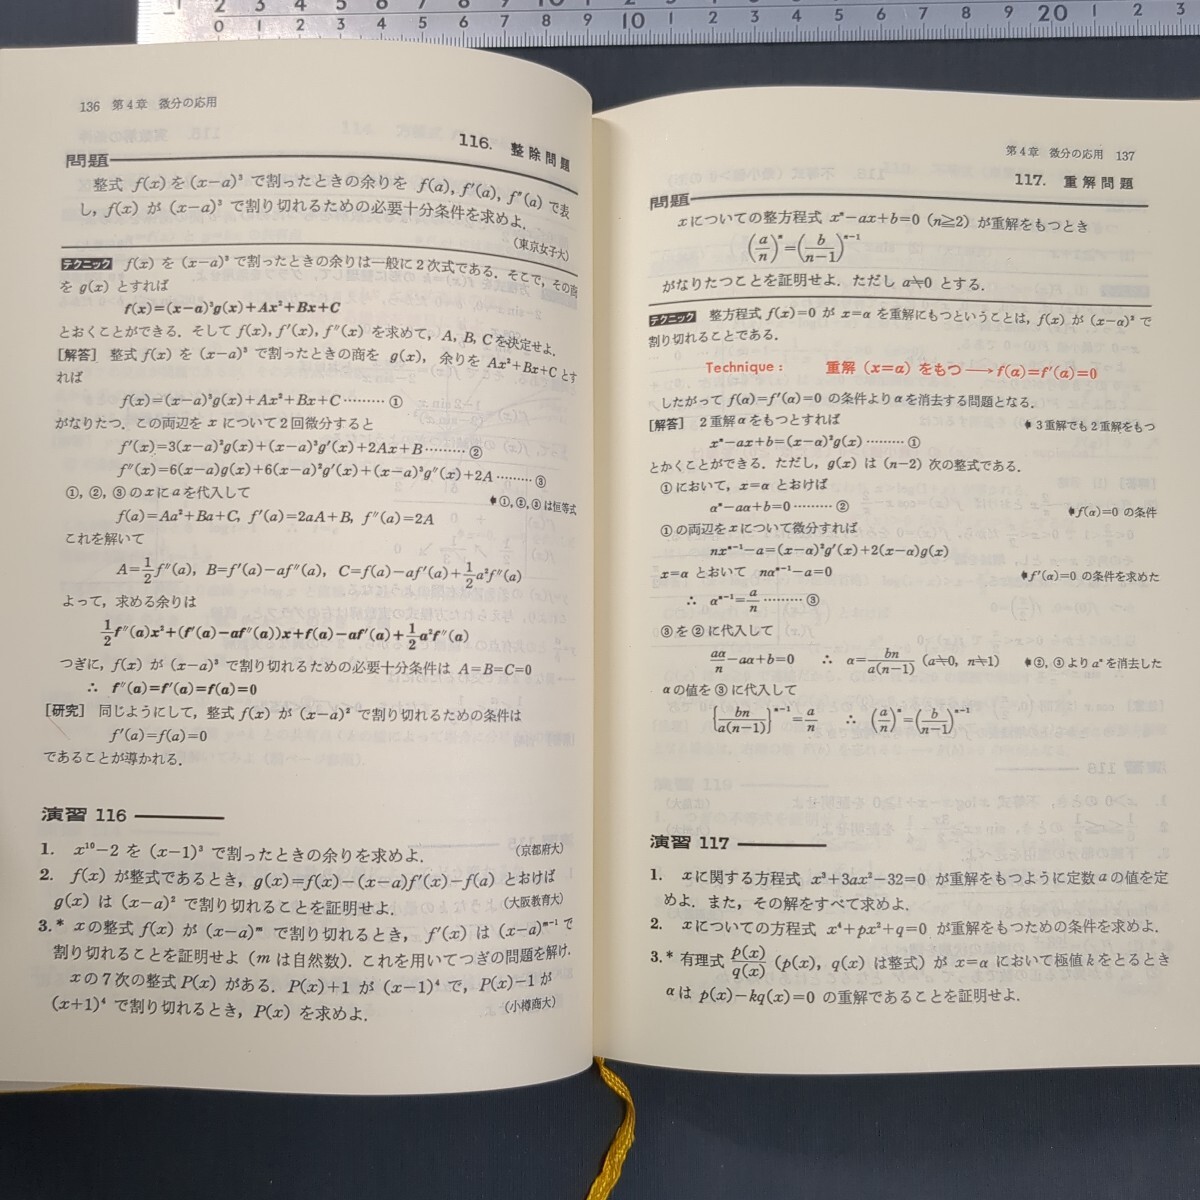 136 第4章 微分の応用
116. 整除問題
問題
整式 f(x) を (x−a)³ で割ったときの余りを f(a), f′(a), f″(a) で表
し, f(x) が (x−a)³ で割り切れるための必要十分条件を求めよ.
(東京女子大)
テクニック f(x) を (x−a)³ で割ったときの余りは一般に2次式である. そこで, その商
を g(x) とすれば
f(x)=(x−a)³g(x)+Ax²+Bx+C
とおくことができる. そして f(x), f′(x), f″(x) を求めて, A, B, C を決定せよ.
[解答] 整式 f(x) を (x−a)³ で割ったときの商を g(x), 余りを Ax²+Bx+C とす
れば
f(x)=(x−a)³g(x)+Ax²+Bx+C ……… ①
がなりたつ. この両辺を x について2回微分すると
f′(x)=3(x−a)²g(x)+(x−a)³g′(x)+2Ax+B ……… ②
f″(x)=6(x−a)g(x)+6(x−a)²g′(x)+(x−a)³g″(x)+2A ……… ③
①, ②, ③のxにaを代入して ➧①,②,③は恒等式
f(a)=Aa²+Ba+C, f′(a)=2aA+B, f″(a)=2A
これを解いて
A=1/2 f″(a), B=f′(a)−af″(a), C=f(a)−af′(a)+1/2 a²f″(a)
よって, 求める余りは
1/2 f″(a)x²+(f′(a)−af″(a))x+f(a)−af′(a)+1/2 a²f″(a)
つぎに, f(x) が (x−a)³ で割り切れるための必要十分条件は A=B=C=0
∴ f″(a)=f′(a)=f(a)=0
[研究] 同じようにして, 整式 f(x) が (x−a)² で割り切れるための条件は
f′(a)=f(a)=0
であることが導かれる.
演習 116
1. x¹⁰−2 を (x−1)³ で割ったときの余りを求めよ. (京都府大)
2. f(x) が整式であるとき, g(x)=f(x)−(x−a)f′(x)−f(a) とおけば
g(x) は (x−a)² で割り切れることを証明せよ. (大阪教育大)
3.* xの整式 f(x) が (x−a)ᵐ で割り切れるとき, f′(x) は (x−a)ᵐ⁻¹ で
割り切れることを証明せよ (m は自然数). これを用いてつぎの問題を解け.
xの7次の整式 P(x) がある. P(x)+1 が (x−1)⁴ で, P(x)−1 が
(x+1)⁴ で割り切れるとき, P(x) を求めよ. (小樽商大)
第4章 微分の応用 137
117. 重解問題
問題
xについての整方程式 xⁿ−ax+b=0 (n≧2) が重解をもつとき
(a/n)ⁿ=(b/(n−1))ⁿ⁻¹
がなりたつことを証明せよ. ただし a≒0 とする.
テクニック 整方程式 f(x)=0 が x=α を重解にもつということは, f(x) が (x−α)² で
割り切れることである.
Technique: 重解 (x=α) をもつ ⟶ f(α)=f′(α)=0
したがって f(α)=f′(α)=0 の条件よりαを消去する問題となる.
[解答] 2重解αをもつとすれば ➧3重解でも2重解をもつ
xⁿ−ax+b=(x−α)²g(x) ……… ①
とかくことができる. ただし, g(x) は (n−2) 次の整式である.
①において, x=α とおけば
αⁿ−aα+b=0 ……… ② ➧f(α)=0 の条件
①の両辺をxについて微分すれば
nxⁿ⁻¹−a=(x−α)²g′(x)+2(x−α)g(x)
x=α とおいて nαⁿ⁻¹−a=0 ➧f′(α)=0 の条件を求めた
∴ αⁿ⁻¹=a/n ……… ③
③を②に代入して
aα/n−aα+b=0 ∴ α=bn/a(n−1) (a≒0, n≒1) ➧②,③よりαⁿを消去した
αの値を③に代入して
{bn/a(n−1)}ⁿ⁻¹=a/n ∴ (a/n)ⁿ=(b/(n−1))ⁿ⁻¹
演習 117
1. xに関する方程式 x³+3ax²−32=0 が重解をもつように定数aの値を定
めよ. また, その解をすべて求めよ.
2. xについての方程式 x⁴+px²+q=0 が重解をもつための条件を求めよ.
3.* 有理式 p(x)/q(x) (p(x), q(x) は整式) が x=α において極値kをとるとき
αは p(x)−kq(x)=0 の重解であることを証明せよ.